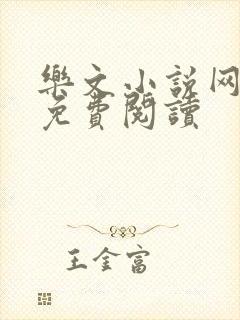 樂文小説网
免費閱讀
王金富